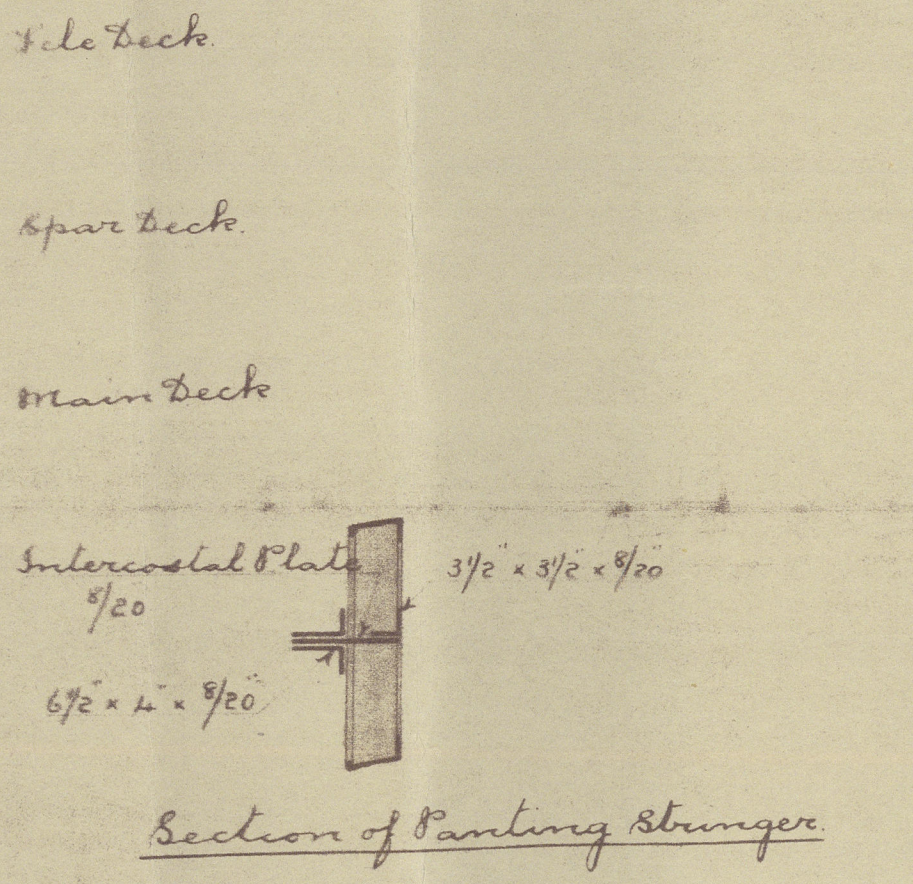 F'cle Deck.
Spar Deck.
Main Deck
Intercostal Plate
8/20
3 1/2" × 3 1/2" × 8/20"
6 1/2" × 4" × 8/20"
Section of Panting Stringer.